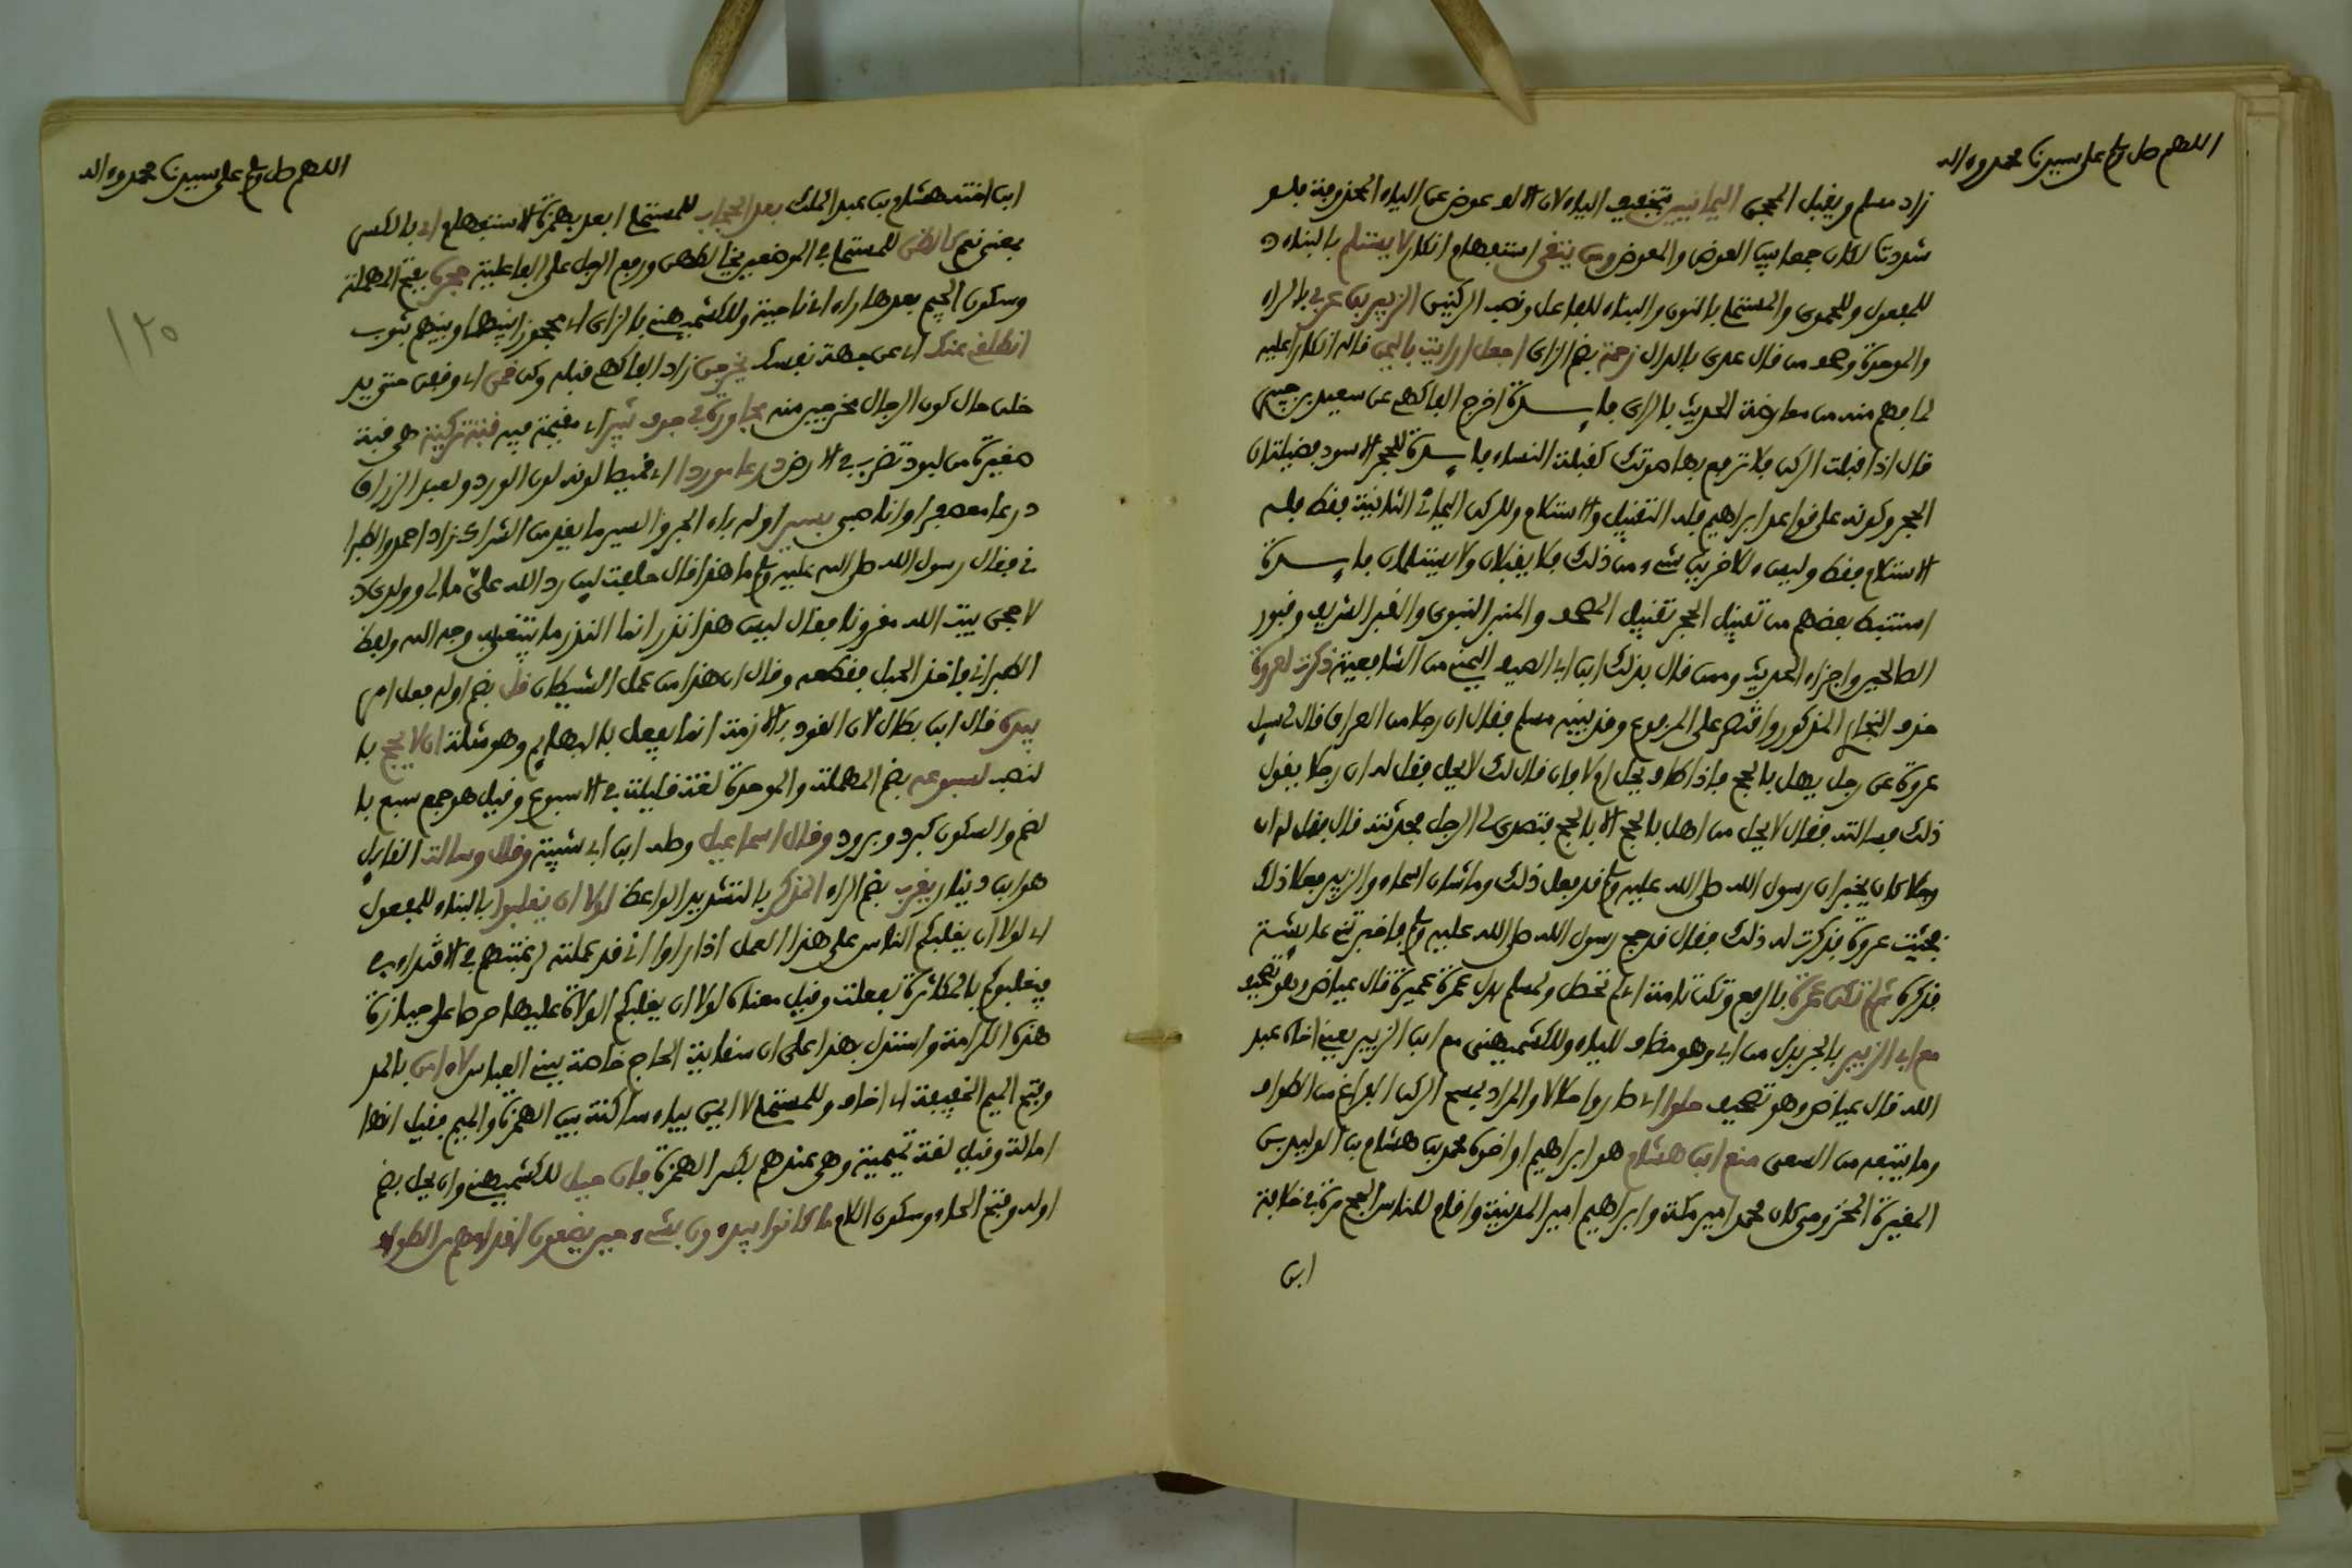 اللهم صل وسلم على سيدنا محمد وءاله
زاد مسلم ويقبل الحجر اليمانيين بتخفيف الياء لان الالف عوض عن الياء المحذوفة فلو
شددتا لكان جمعا بين العوض والمعوض ومن يتقي استفهام انكار لا يستلم بالبناء
للمفعول وللحموي والمستملي بالنون والبناء للفاعل ونصب الركنين الزبير بن عربي بالراء
والموحدة وهو من قال عدي بالدال زحمة بضم الزاي اجعل ارايت باليمن قاله انكارا عليه
لما فهم منه من معارضة الحديث بالراي فايدة اخرج الفاكهي عن سعيد بن جبير
قال اذا قبلت الركن فلا ترفع بها صوتك كقبلة النساء فايدة للحجر الاسود فضيلتان
الحجر وكونه على قواعد ابراهيم فله التقبيل والاستلام وللركن اليماني الثانية فقط فله
الاستلام فقط وليس للاخرين شيء من ذلك فلا يقبلان ولا يستلمان فايدة
استنبط بعضهم من تقبيل الحجر تقبيل المصحف والمنبر النبوي والقبر الشريف وقبور
الصالحين واجزاء الحديث وممن قال بذلك ابن ابي الصيف اليمني من الشافعية ذكرت لعروة
حذف البخاري المذكور واقتصر على المرفوع وقد بينه مسلم فقال ان رجلا من العراق قال لي سل
عروة عن رجل يهل بالحج فاذا طاف يحل ام لا فان قال لك لا يحل فقل له ان رجلا يقول
ذلك فسالته فقال لا يحل من اهل بالحج الا بالحج فتصدى لي الرجل فحدثته قال فقل له ان
رجلا كان يخبر ان رسول الله صلى الله عليه وسلم قد فعل ذلك وما شان اسماء والزبير فعلا ذلك
فجئت عروة فذكرت له ذلك فقال قد حج رسول الله صلى الله عليه وسلم فاخبرتني عايشة
فذكره ثم لم تكن عمرة بالرفع وتكن تامة اي لم تحصل ولمسلم بدل عمرة غيره قال عياض وهو تصحيف
مع ابي الزبير بالجر بدل من ابي وهو مضاف للياء وللكشميهني مع ابن الزبير يعني اخاه عبد
الله قال عياض وهو تصحيف حلوا اي صاروا حلالا والمراد بمسح الركن الفراغ من الطواف
وما يتبعه من السعي منع ابن هشام هو ابراهيم او اخوه محمد بن هشام بن الوليد بن
المغيرة المخزومي كان محمد امير مكة وابراهيم امير المدينة واقام للناس الحج مرة في خلافة
ابن
اللهم صل وسلم على سيدنا محمد وءاله
١٢٥
ابن اخته هشام بن عبد الملك بعد الحجاب للمستملي ابعد بهمزة الاستفهام اي بالكسر
بمعنى نعم يخالطن للمستملي في الموضعين يخالطهن ورفع الرجل على الفاعلية حجرة بفتح المهملة
وسكون الجيم بعدها راء اي ناحية وللكشميهني بالزاي اي محجوزا بينها وبينهم بثوب
انطلقي عنك اي عن جهة نفسك يخرجن زاد الفاكهي قبله وكن قمن اي وقفن حتى يد
خلن حال كون الرجال مخرجين منه مجاورة في جوف ثبير اي مقيمة فيه قبة تركية هي قبة
صغيرة من لبود تضرب في الارض درعا موردا اي قميصا لونه لون الورد ولعبد الرزاق
درعا معصفرا وانا صبي بسير اوله باء الجر والسير ما يقد من الشراك زاد احمد والطبرا
ني فقال رسول الله صلى الله عليه وسلم ما هذا قال حلفت لين رد الله علي مالي وولدي
لاحجن بيت الله مقرونا فقال ليس هذا نذرا انما النذر ما يبتغى به وجه الله ولفظ
الطبراني فاخذ الحبل فقطعه وقال ان هذا من عمل الشيطان قد بضم اوله فعل امر
بيده قال ابن بطال لان القود بالازمة انما يفعل بالبهايم وهو مثلة ان لا يحج با
لنصب لسبوعه بضم المهملة والموحدة لغة قليلة في الاسبوع وقيل هو جمع سبع با
لضم والسكون كبرد وبرود وقال اسماعيل وصله ابن ابي شيبة وقال وسالت القايل
هو ابن دينار يقرب بضم الراء المذكر بالتشديد الواعظ لولا ان يغلبوا بالبناء للمفعول
اي لولا ان يغلبكم الناس على هذا العمل اذا راوا اني قد عملته لرغبتهم في الاقتداء بي
فيغلبوكم بالمكاثرة لفعلت وقيل معناه لولا ان يغلبكم الولاة عليها حرصا على حيازة
هذه الكرامة واستدل بهذا على ان سقاية الحاج خاصة ببني العباس لا امن بالمد
وفتح الميم الخفيفة اي اخاف وللمستملي لا ايمن بياء ساكنة بين الهمزة والميم فقيل انها
امالة وقيل لغة تميمية وهي عندهم بكسر الهمزة فان حيل للكشميهني وان يحل بضم
اوله وفتح الحاء وسكون اللام ما كانوا يبدءون بشيء حين يضعون اقدامهم الطواف